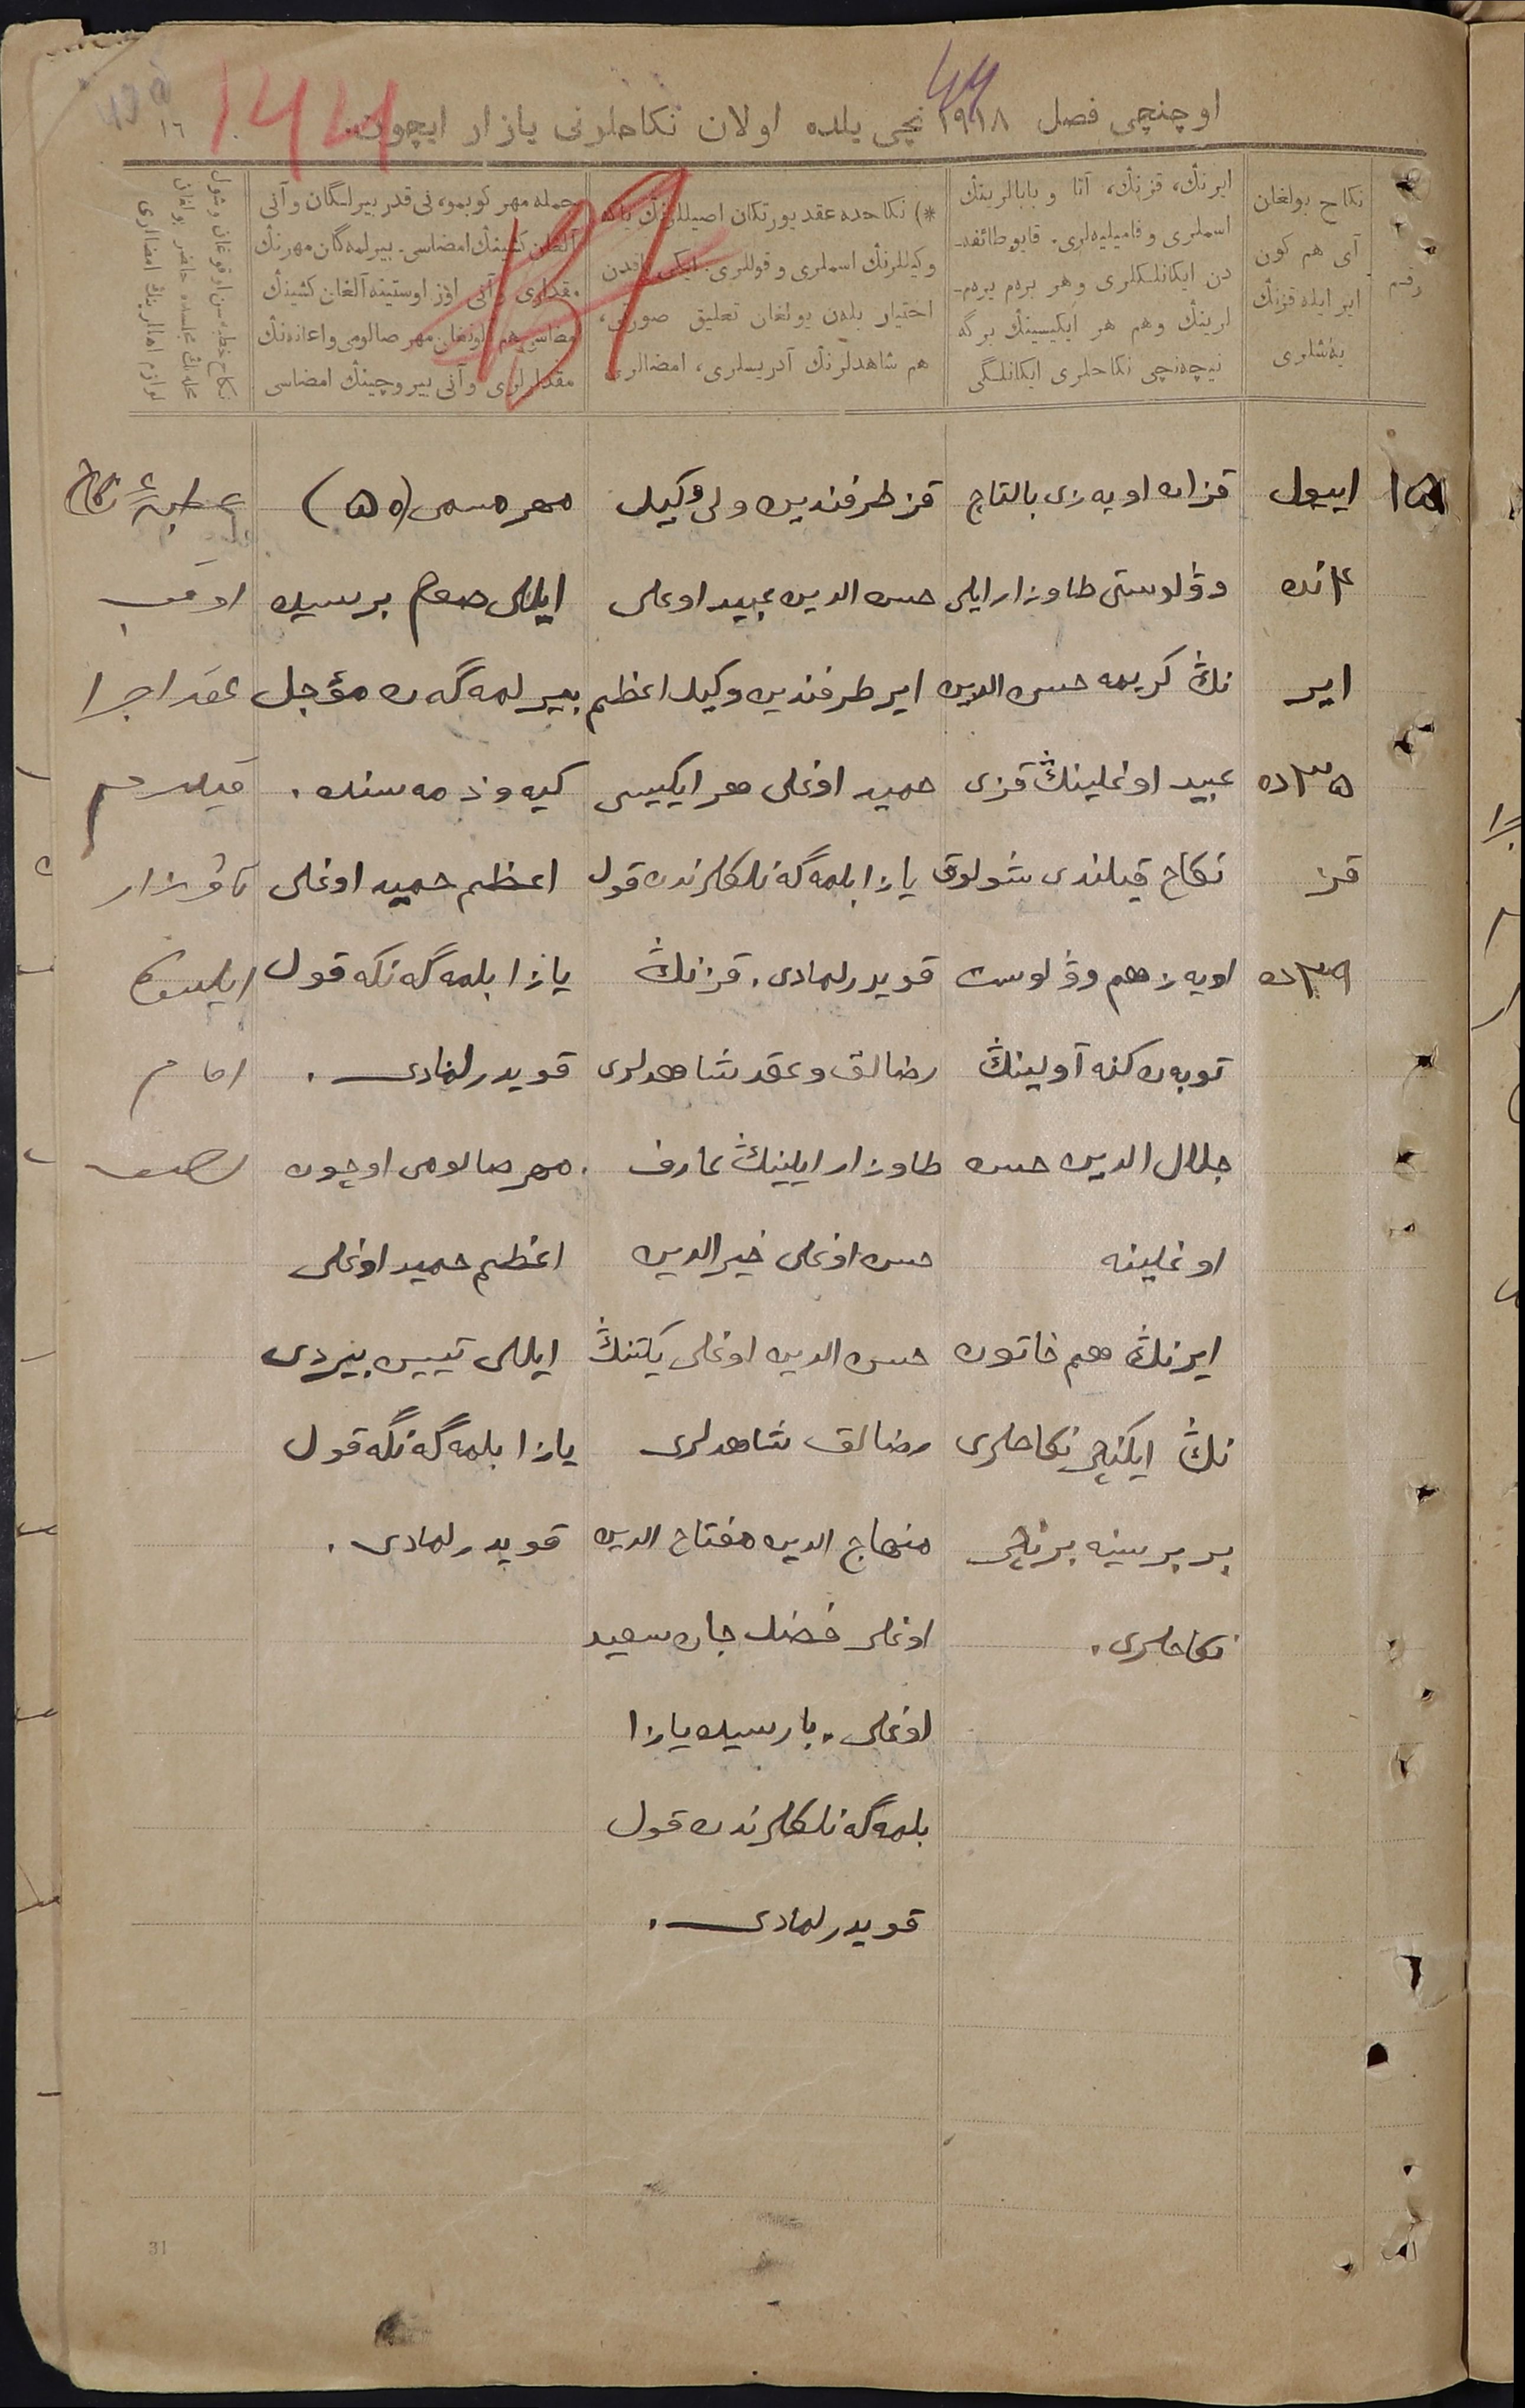 اوچنچی فصل ۱۹۱۸ نچی یلده اولان نکاحلرنی یازار ایچون
۱٦
144
44
رقم
نکاح بولغان
آی هم کون
ایر ایله قزنڭ
یەشلری
ایرنڭ، قزنڭ، آتا و بابالرینڭ
اسملری و فامیلیەلری. قایو طائفه‌ـ
دن ایکانلکلری وهر بردم یردم‌ـ
لرینڭ وهم هر ایکیسینڭ برگه
نیچەنچی نکاحلری ایکانلگی
*) نکاحده عقد یورتکان اصیللرنڭ یاکه
وکیللرنڭ اسملری و قوللری. ایکی طرفدن
اختیار بلەن بولغان تعلیق صورتی،
هم شاهدلرنڭ آدریسلری، امضالری
جمله مهر کوبمو، نی قدر بیرلگان وآنی
آلغان کشینڭ امضاسی. بیرلمەگان مهرنڭ
مقداری و آنی اۆز اوستینه آلغان کشینڭ
امضاسی هم آلونغان مهر صالومی واعانەنڭ
مقدارلری وآنی بیروچینڭ امضاسی
نکاح خطبەسن اوقوغان و شول
محلەنڭ مجلسده حاضر بولغان
لوازم اهالیرینڭ امضالری
۱۵
اییول
۴ نده
ایر
۳۵ ده
قز
۳۹ ده
قزان اویەزی بالتاچ
وۋلوستی طاوزار ایلی
نڭ کریمه حسن الدین
عبید اوغلینڭ قزی
نکاح قیلندی شولوق
اویەز هم وۋلوست
توبەن کنه آولینڭ
جلال الدین حسن
اوغلینه
ایرنڭ هم خاتون
نڭ ایکنچی نکاحلری
بر برسینه برنچی
نکاحلری.
قز طرفندین ولی وکیل
حسن الدین عبید اوغلی
ایر طرفندین وکیل اعظم
حمید اوغلی هر ایکیسی
یازا بلمەگەنلکلرندن قول
قویدرلمادی. قزنڭ
رضالق و عقد شاهدلری
طاوزار ایلینڭ عارف
حسن اوغلی خیرالدین
حسن الدین اوغلی یکتنڭ
رضالق شاهدلری
منهاج الدین مفتاح الدین
اوغلی فضل جان سعید
اوغلی. بارسیده یازا
بلمەگەنلکلرندن قول
قویدرلمادی.
مهر مسمی (۵۰)
ایللی صوم برسیده
بیرلمەگەن مؤجل
کیەو ذمەسنده.
اعظم حمید اوغلی
یازا بلمەگەنگه قول
قویدرلمادی.
مهر صالومی اوچون
اعظم حمید اوغلی
ایللی تیین بیردی
یازا بلمەگەنگه قول
قویدرلمادی.
خطبهٔ نکاح
اوقوب
عقد اجرا
قیلدم
طاوزار
ایلینڭ
امام
31